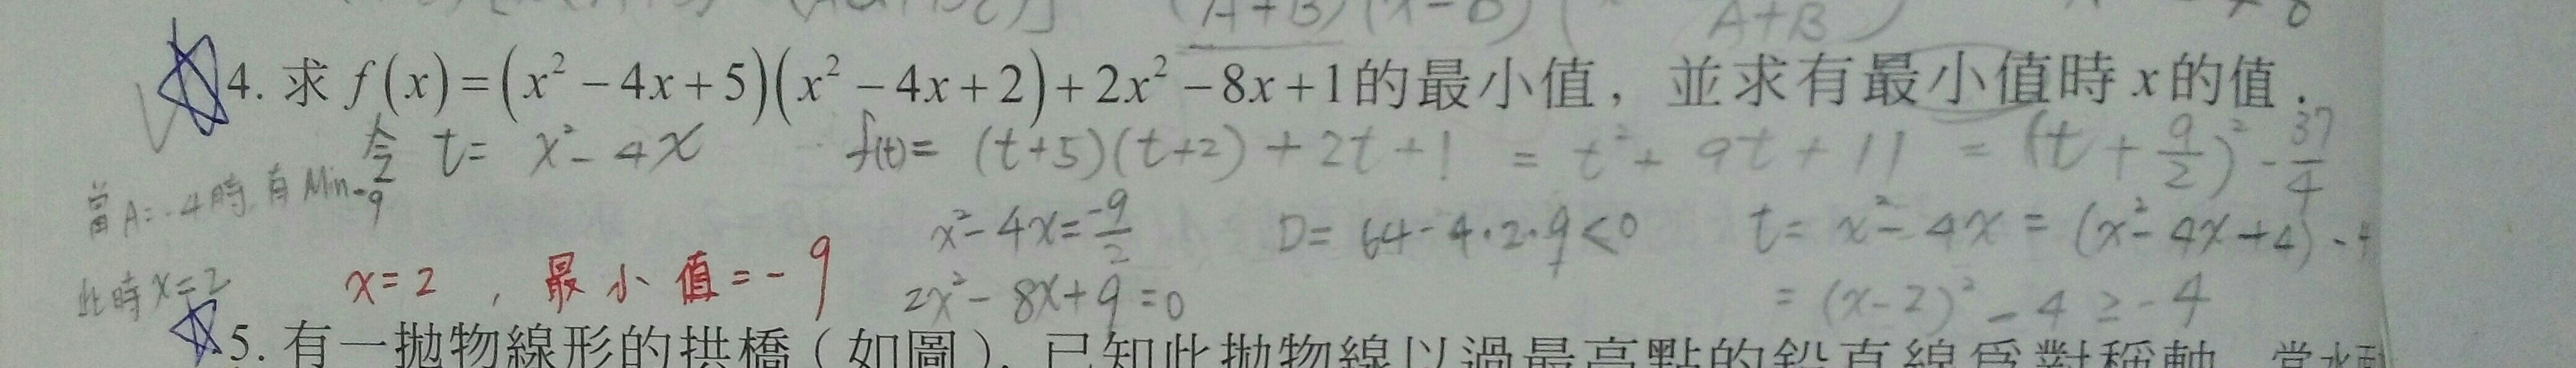 (A+B)(x-B)(
A+B)
4. 求 f(x)=(x²-4x+5)(x²-4x+2)+2x²-8x+1的最小值，並求有最小值時 x 的值．
令 t= x²-4x f(t)= (t+5)(t+2)+2t+1 = t²+9t+11 = (t+9/2)²-37/4
當A=-4時,有Min-9
x²-4x=-9/2 D= 64-4·2·9<0 t= x²-4x = (x²-4x+4)-4
此時x=2 x=2 , 最小值=-9 2x²-8x+9=0 = (x-2)²-4≥-4
5. 有一拋物線形的拱橋（如圖），已知此拋物線以過最高點的鉛直線為對稱軸，當水